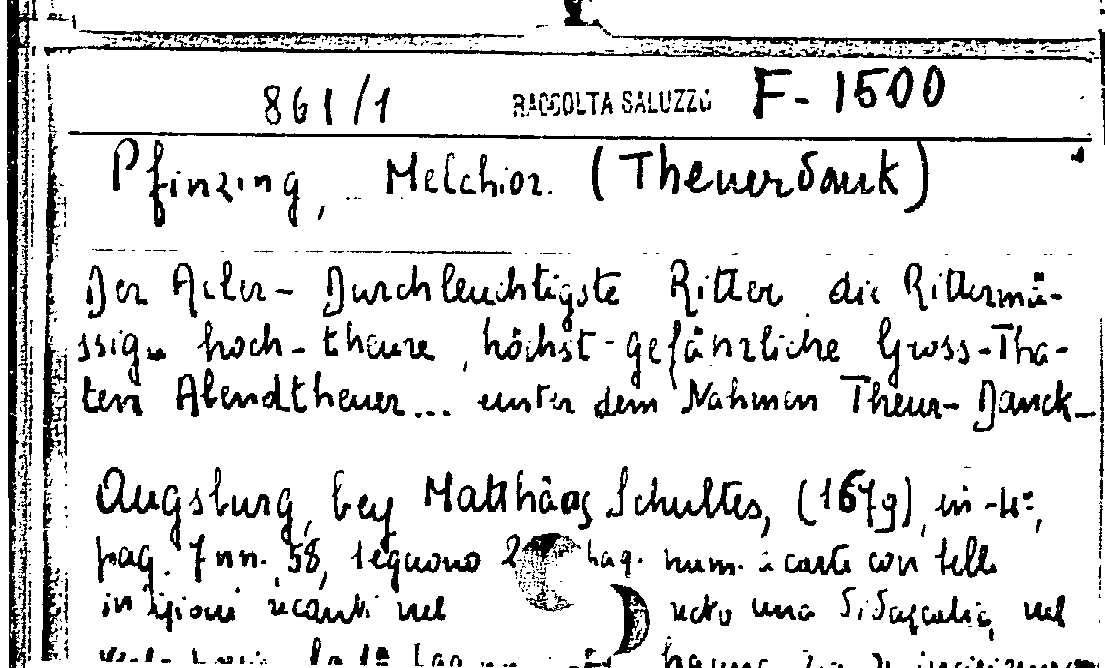 861/1 RACCOLTA SALUZZO F-1500
Pfinzing, Melchior. (Theuerdank)
Der Aler-Durchleuchtigste Ritter die Rittermä-
ssige hoch-theure, höchst-gefänzliche Gross-Tha-
ten Abendtheuer... unter dem Nahmen Theur-Danck-
Augsburg, bey Matthäas Schultes, (1679), in-4°,
pag. 7 nn. 58, seguono 2 pag. num. a carte con belle
incisioni recanti nel recto una didascalia, nel